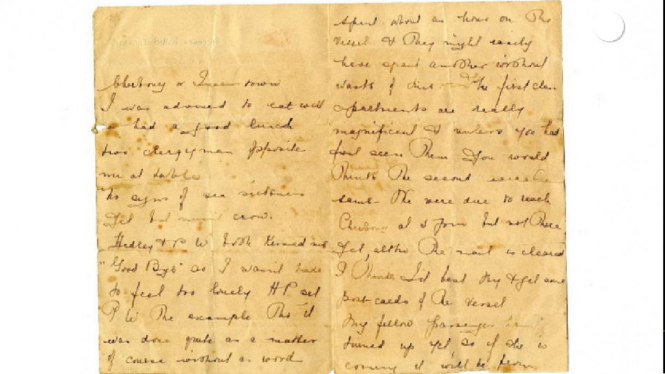 Cherbourg or Queenstown
I was advised to eat well
so had a good lunch
two clergymen opposite
me at table
No signs of sea sickness
Yet but crow.
Hedley & P W both kissed me
"Good Bye" so I wasn't
to feel too lonely H P set
P W the example Tho it
was done quite as a matter
of course without a word
spent about an hour on the
vessel & They might easily
have spent another without
waste of The first class
apartments are really
magnificent & unless you had
first seen Them You would
Think The second were the
same. We were due to reach
Cherbourg at 5 from but not There
Yet, altho The mail is cleared
I Think I'd best try & get some
Post cards of The vessel
My fellow passenger
turned up yet so if she is
coming it will be from